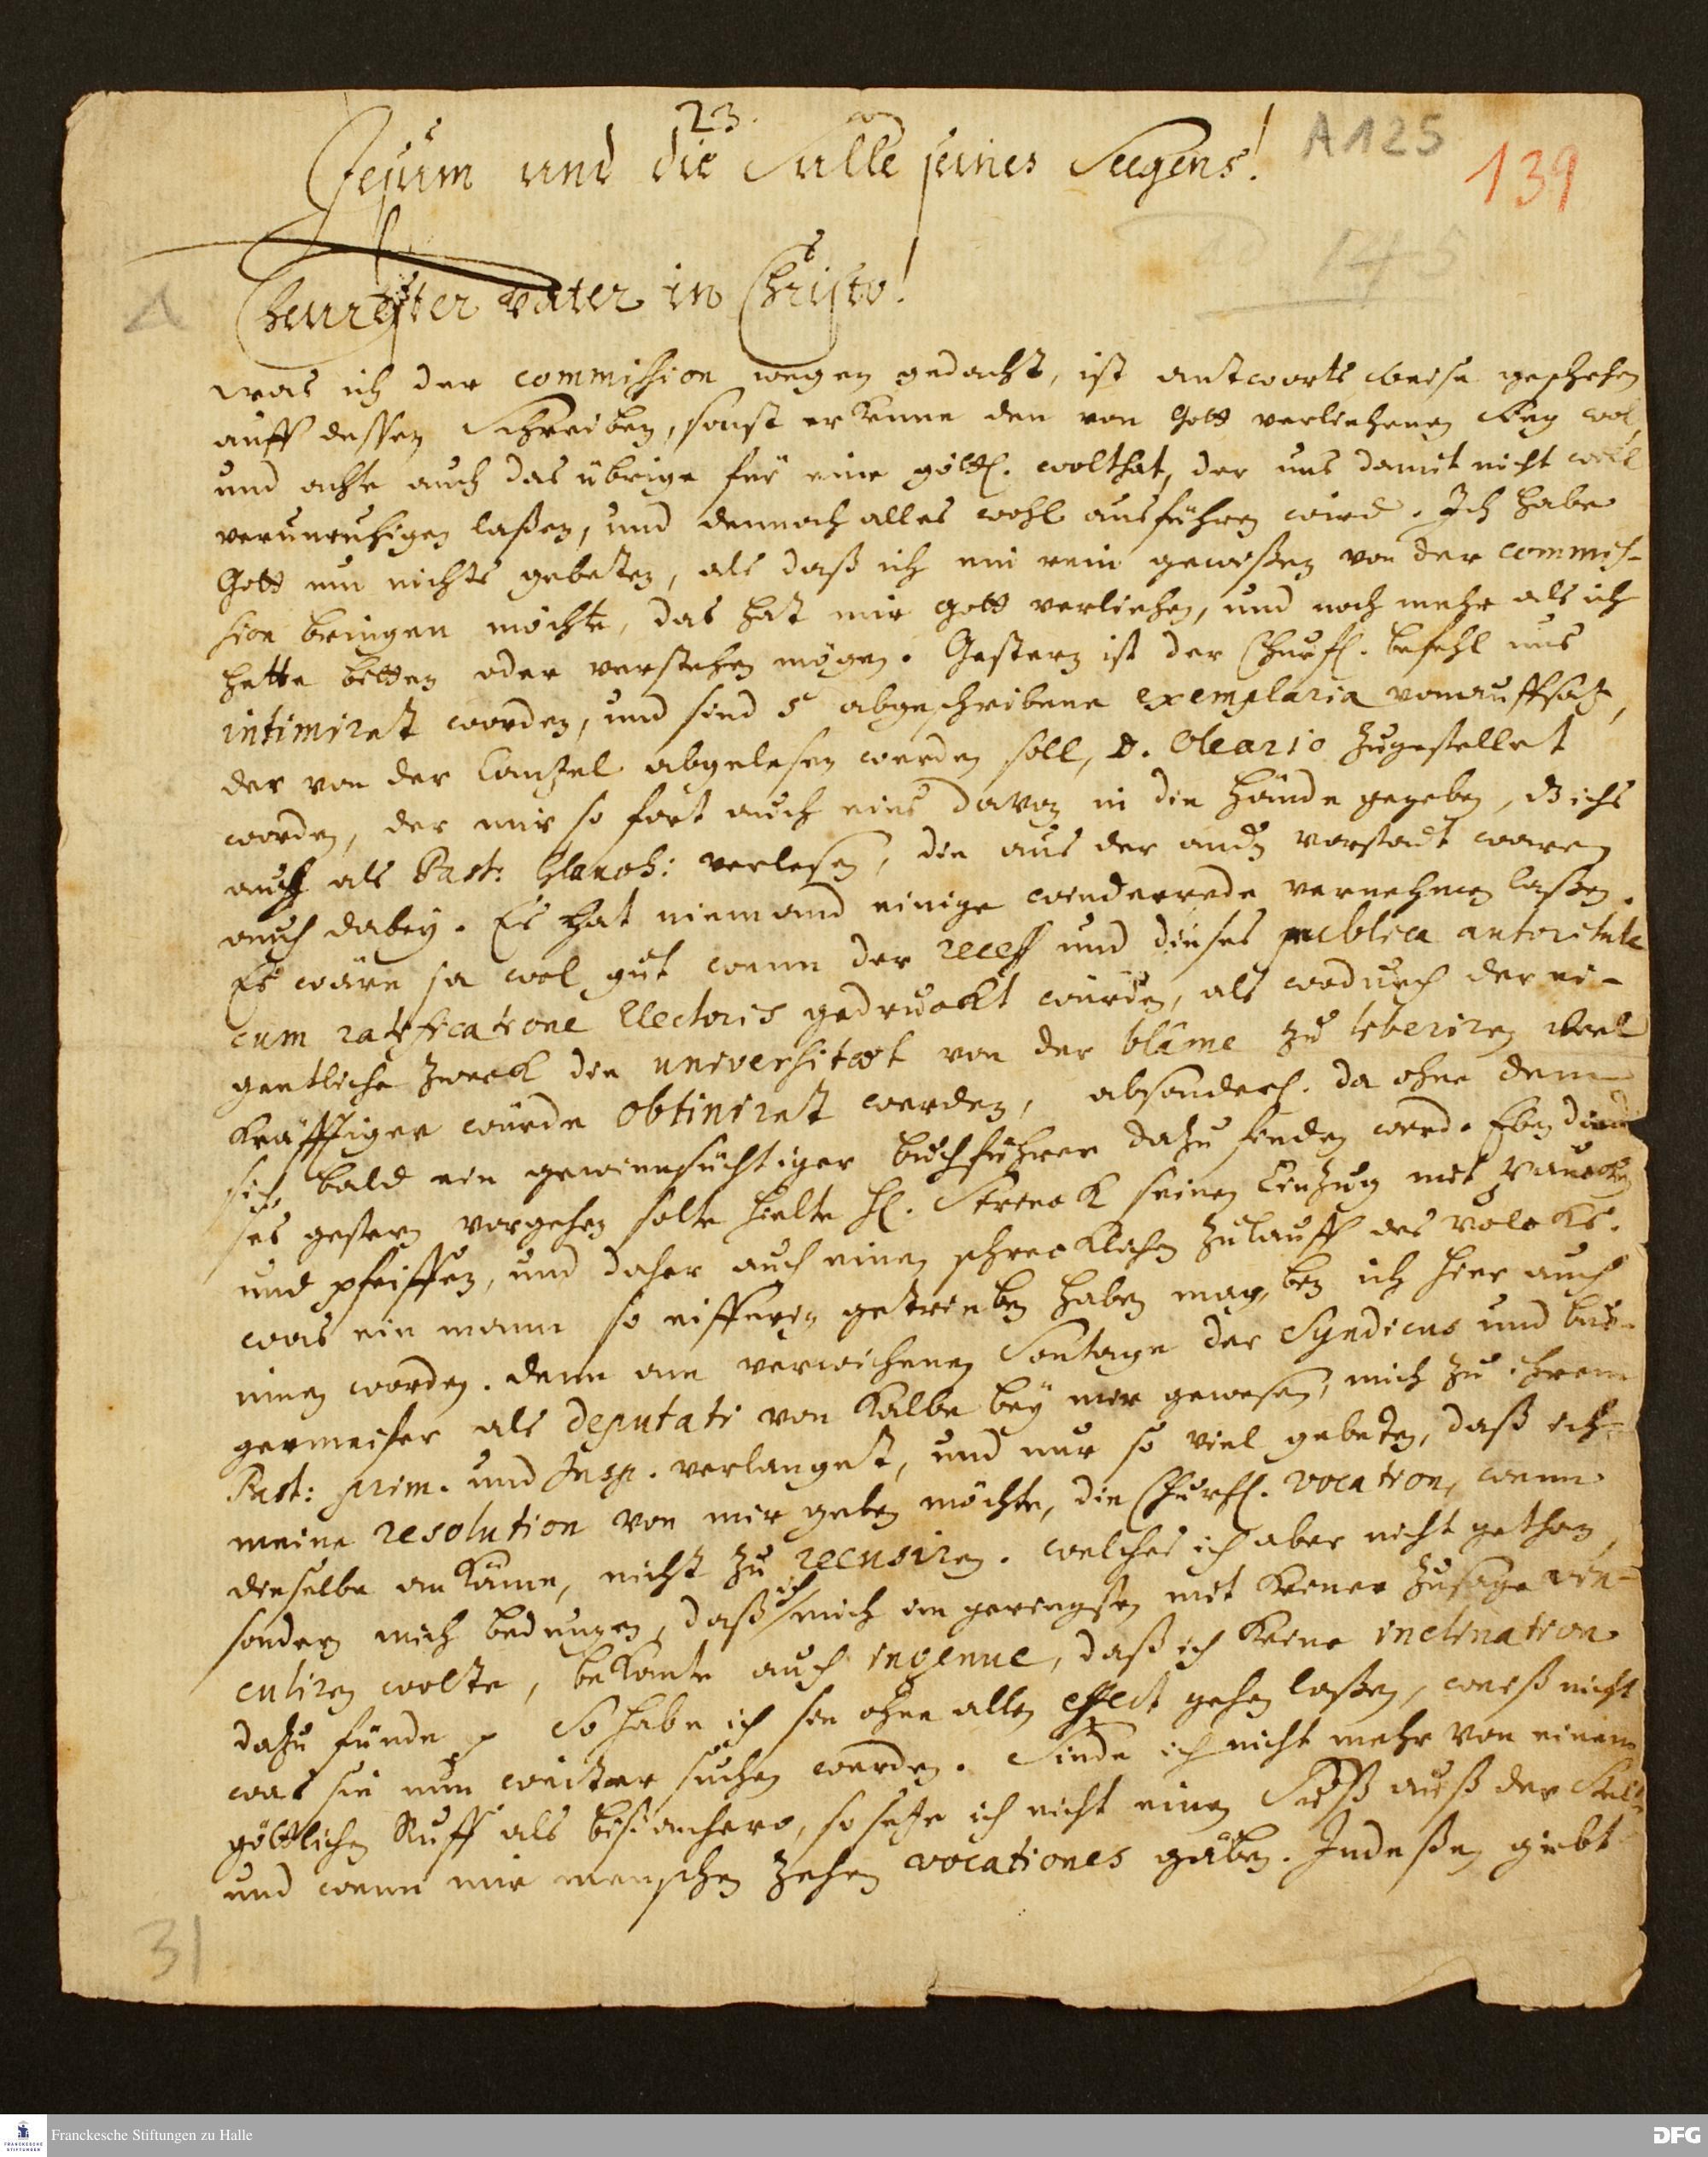 23.
A 125
139
Jesum und die Fülle seines Seegens!
145
Theurester Vater in Christo!
was ich der commission wegen gedacht, ist antworts weise geschehen
auff dessen Schreiben, sonst erkenne den von Gott verliehenen Sieg wol,
und achte auch das übrige für eine göttl. wolthat, der uns damit nicht will
verunruhigen laßen, und dennoch alles wohl ausführen wird. Ich habe
Gott um nichts gebeten, als daß ich ein rein gewißen von der commis-
sion bringen möchte, das hat mir Gott verliehen, und noch mehr als ich
hette bitten oder verstehen mögen. Gestern ist der Churfl. befehl uns
intimiret worden, und sind 5 abgeschribene exemplaria vom auffsatz,
der von der Cantzel abgelesen werden soll, D. Oleario zugestellet
worden, der mir so fort auch eins davon in die Hände gegeben, ichs
auch als Past: Glauch: verlesen, die aus der andern vorstadt waren
auch dabey. Es hat niemand einige wiederrede vernehmen laßen.
Es wäre ja wol gut wenn der recess und dieses publica autoritate
cum ratificatione Electoris gedruckt würden, als wodurch der ei-
gentliche Zweck die universitæt von der blâme zu liberiren viel
kräfftiger würde obtiniret werden, absonderl. da ohne dem
sich bald ein gewinnsüchtiger buchführer dazu finden werd. Eben da die
ses gestern vorgehen solte hielte H. Stryck seinen Einzug mit Paucken
und pfeiffen, und daher auch einen schrecklichen Zulauff des Volcks.
was ein mann so eifferig getrieben haben mag, bin ich hier auch
innen worden. denn am verwichenen Sontage der Syndicus und bur-
germeister als deputati von Kalbe bey mir gewesen, mich zu ihrem
Past: prim. und Insp. verlanget, und nur so viel gebeten, daß ich
meine resolution von mir geben möchte, die Churfl. vocation, wenn
dieselbe an käme, nicht zu recusiren. welches ich aber nicht gethan,
sondern mich bedungen, daß ich mich im geringsten mit keiner Zusage vin-
culiren wolte, bekante auch ingenue, daß ich keine inclination
dazu fünde. So habe ich sie ohne allen effect gehen laßen, weiß nicht
was sie nun weiter suchen werden. Finde ich nicht mehr von einem
göttlichen Ruff als bißanhero, so setze ich nicht einen Fuß auß der Stell
und wenn mir menschen zehen vocationes gäben. Indeßen giebt
31
Franckesche Stiftungen zu Halle
DFG